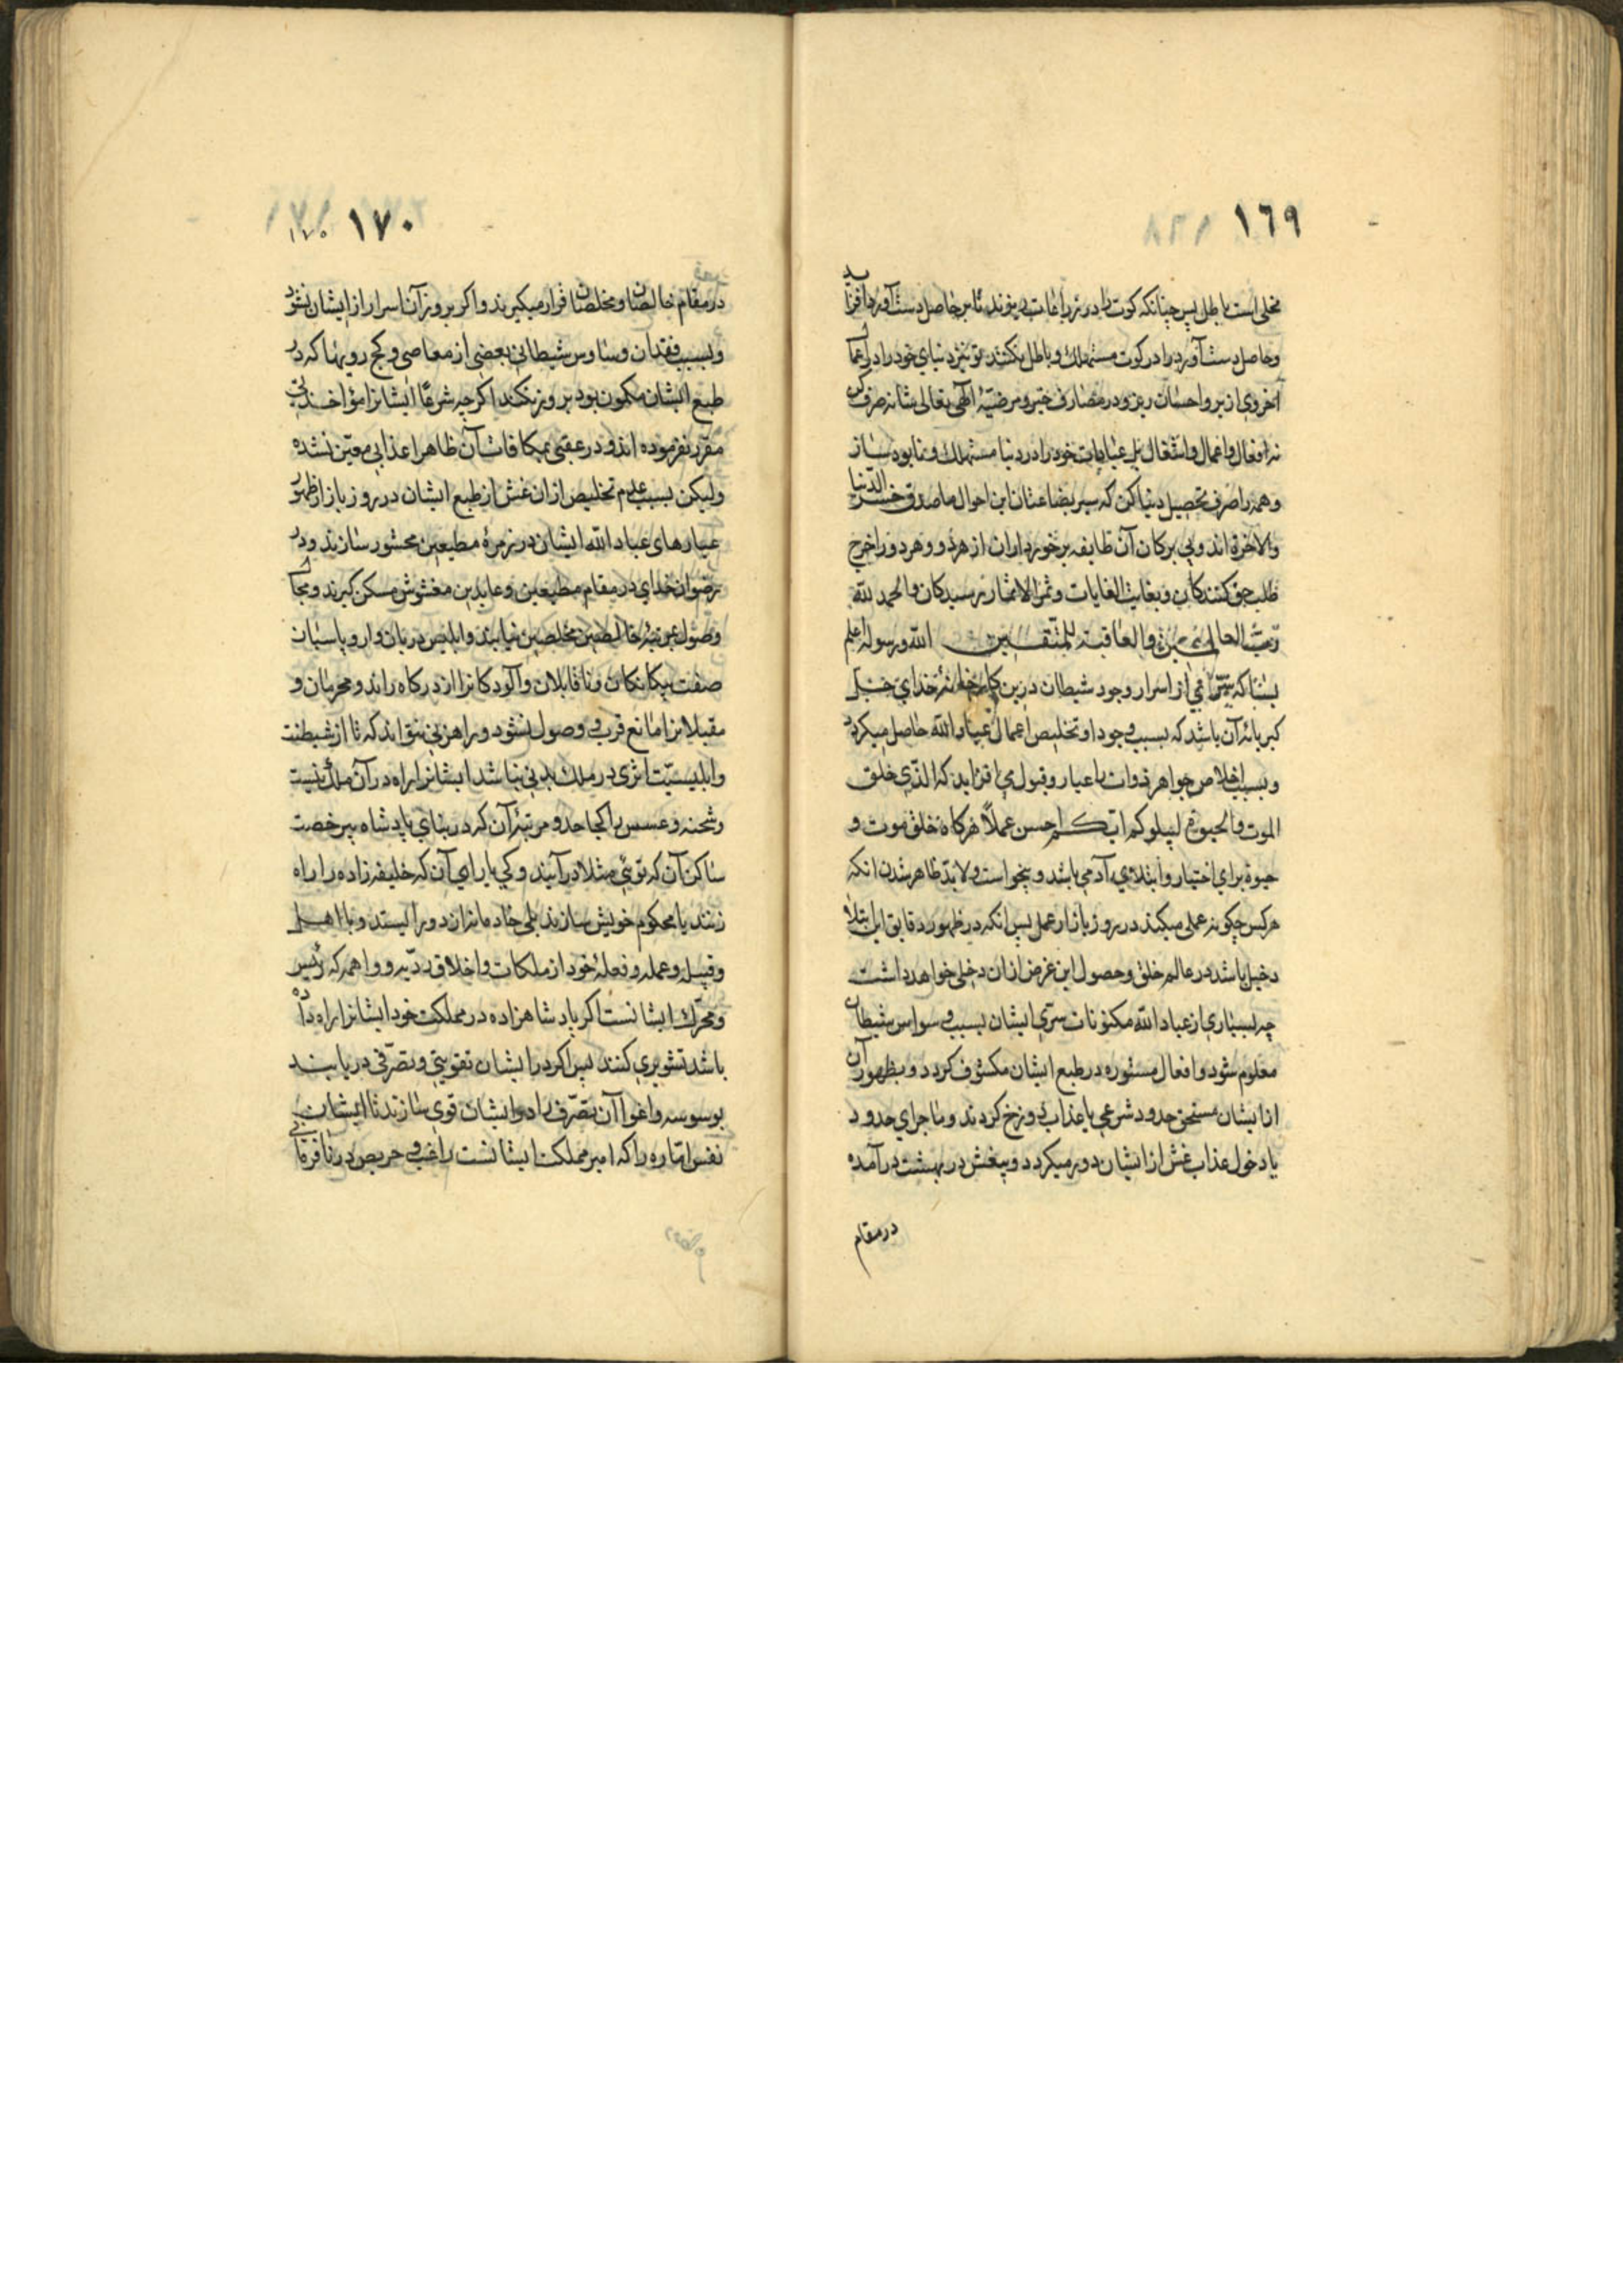 ١٦٩
مخلی است باطل پس چنانکه کوت را در زراعات میریزند تا بر حاصل دست آورد افزاید
و حاصل دست آورد را در کوت مستهلک و باطل نکنند تو نیز دنیای خود را در اعمال
آخروی از بر و احسان ریز و در مصارف خیر و مرضیّهٔ الهی تعالی شانه صرف کن
نه افعال و اعمال و اشغال بل عبادات خود را در دنیا مستهلک و نابود ساز
و همه را صرف تحصیل دنیا کن که سیر بضاعتان این احوال ماصدق خسر الدّنیا
والاخرة اند و بی برکان آن طایفه برخورداران از هر دو و هر دو را خرج
طلب حق کنندکان و بغایت الغایات و ثمر الاثمار رسیدکان والحمد للّه
ربّ العالمین والعاقبة للمتّقین اللّه و رسوله اعلم
بسا که سرّ از اسرار وجود شیطان درین کارخانهٔ خدای جلّ
کبریائه آن باشد که بسبب وجود او تخلیص اعمال عباد اللّه حاصل میکردد
و بسبب اخلاص جواهر ذوات را عیار و قبول می افزاید که الّذی خلق
الموت والحیوة لیبلوکم ایّکم احسن عملاً هرکاه خلق موت و
حیوة برای اختیار و ابتلای آدمی باشد و بخواست ولا بدّ ظاهر شدن انکه
هر کس چکونه عملی میکند در روز بازار عمل پس انکه در ظهور دقایق این ابتلا
دخیل باشد در عالم خلق و حصول این غرض ازان دخلی خواهد داشت
چه بسیاری از عباد اللّه مکنونات سرّی ایشان بسبب وسواس شیطان
معلوم شود و افعال مستوره در طبع ایشان مکشوف کردد و بظهور آن
از ایشان مستحق حدود شرعی یا عذاب دوزخ کردند و ماجرای حدود
یا دخول عذاب غش از ایشان دور میکردد و بیغش در بهشت درآمده
در مقام
١٧٠
١٧٠
در مقام خالصان و مخلصان قرار میکیرند و اکر بروز آن اسرار از ایشان نشود
و بسبب فقدان وساوس شیطانی بعضی از معاصی و کج رویها که در
طبع ایشان مکمون بود بروز نکند اکرچه شرعًا ایشانرا مؤاخذتی
مقرر نفرموده اند و در عقبی بمکافات آن ظاهرا عذابی معیّن نشده
ولیکن بسبب عدم تخلیص ازان غش از طبع ایشان در روز بازار ظهور
عیارهای عباد اللّه ایشان در زمرهٔ مطیعین محشور سازند و در
رضوان خدای در مقام مطیعین و عابدین مغشوش مسکن کیرند و مجال
وصول مرتبهٔ خالصین مخلصین نیابند و ابلیس دربان وار و پاسبان
صفت بیکانکان و ناقابلان و آلودکانرا از درکاه راند و محرمان و
مقبلانرا مانع قرب و وصول نشود و راهزنی نتواند که تا از شیطنت
و ابلیسیّت اثری در ملک بدنی نباشد ایشانرا راه در آن ملک نیست
و شحنه و عسس را کجا حد و مرتبهٔ آن که در بنای پادشاه بیرخصت
ساکن آن که توئی مثلا درآیند و کی یارای آن که خلیفه زاده را راه
زنند یا محکوم خویش سازند بلی خادمانرا از دور ایستد و با اهل
و قبیله و عمله و فعلهٔ خود از ملکات و اخلاق ردّیه و واهمه که رئیس
و محرّک ایشانست اکر پادشاهزاده در مملکت خود ایشانرا راه داده
باشد تشویری کنند پس اکر در ایشان تقویتی و تصرّفی دریابند
بوسوسه و اغوا آن تصرّف را در ایشان قوی سازند تا ایشان
نفس امّاره را که امیر مملکت ایشانست راغب و حریص در نافرمانی